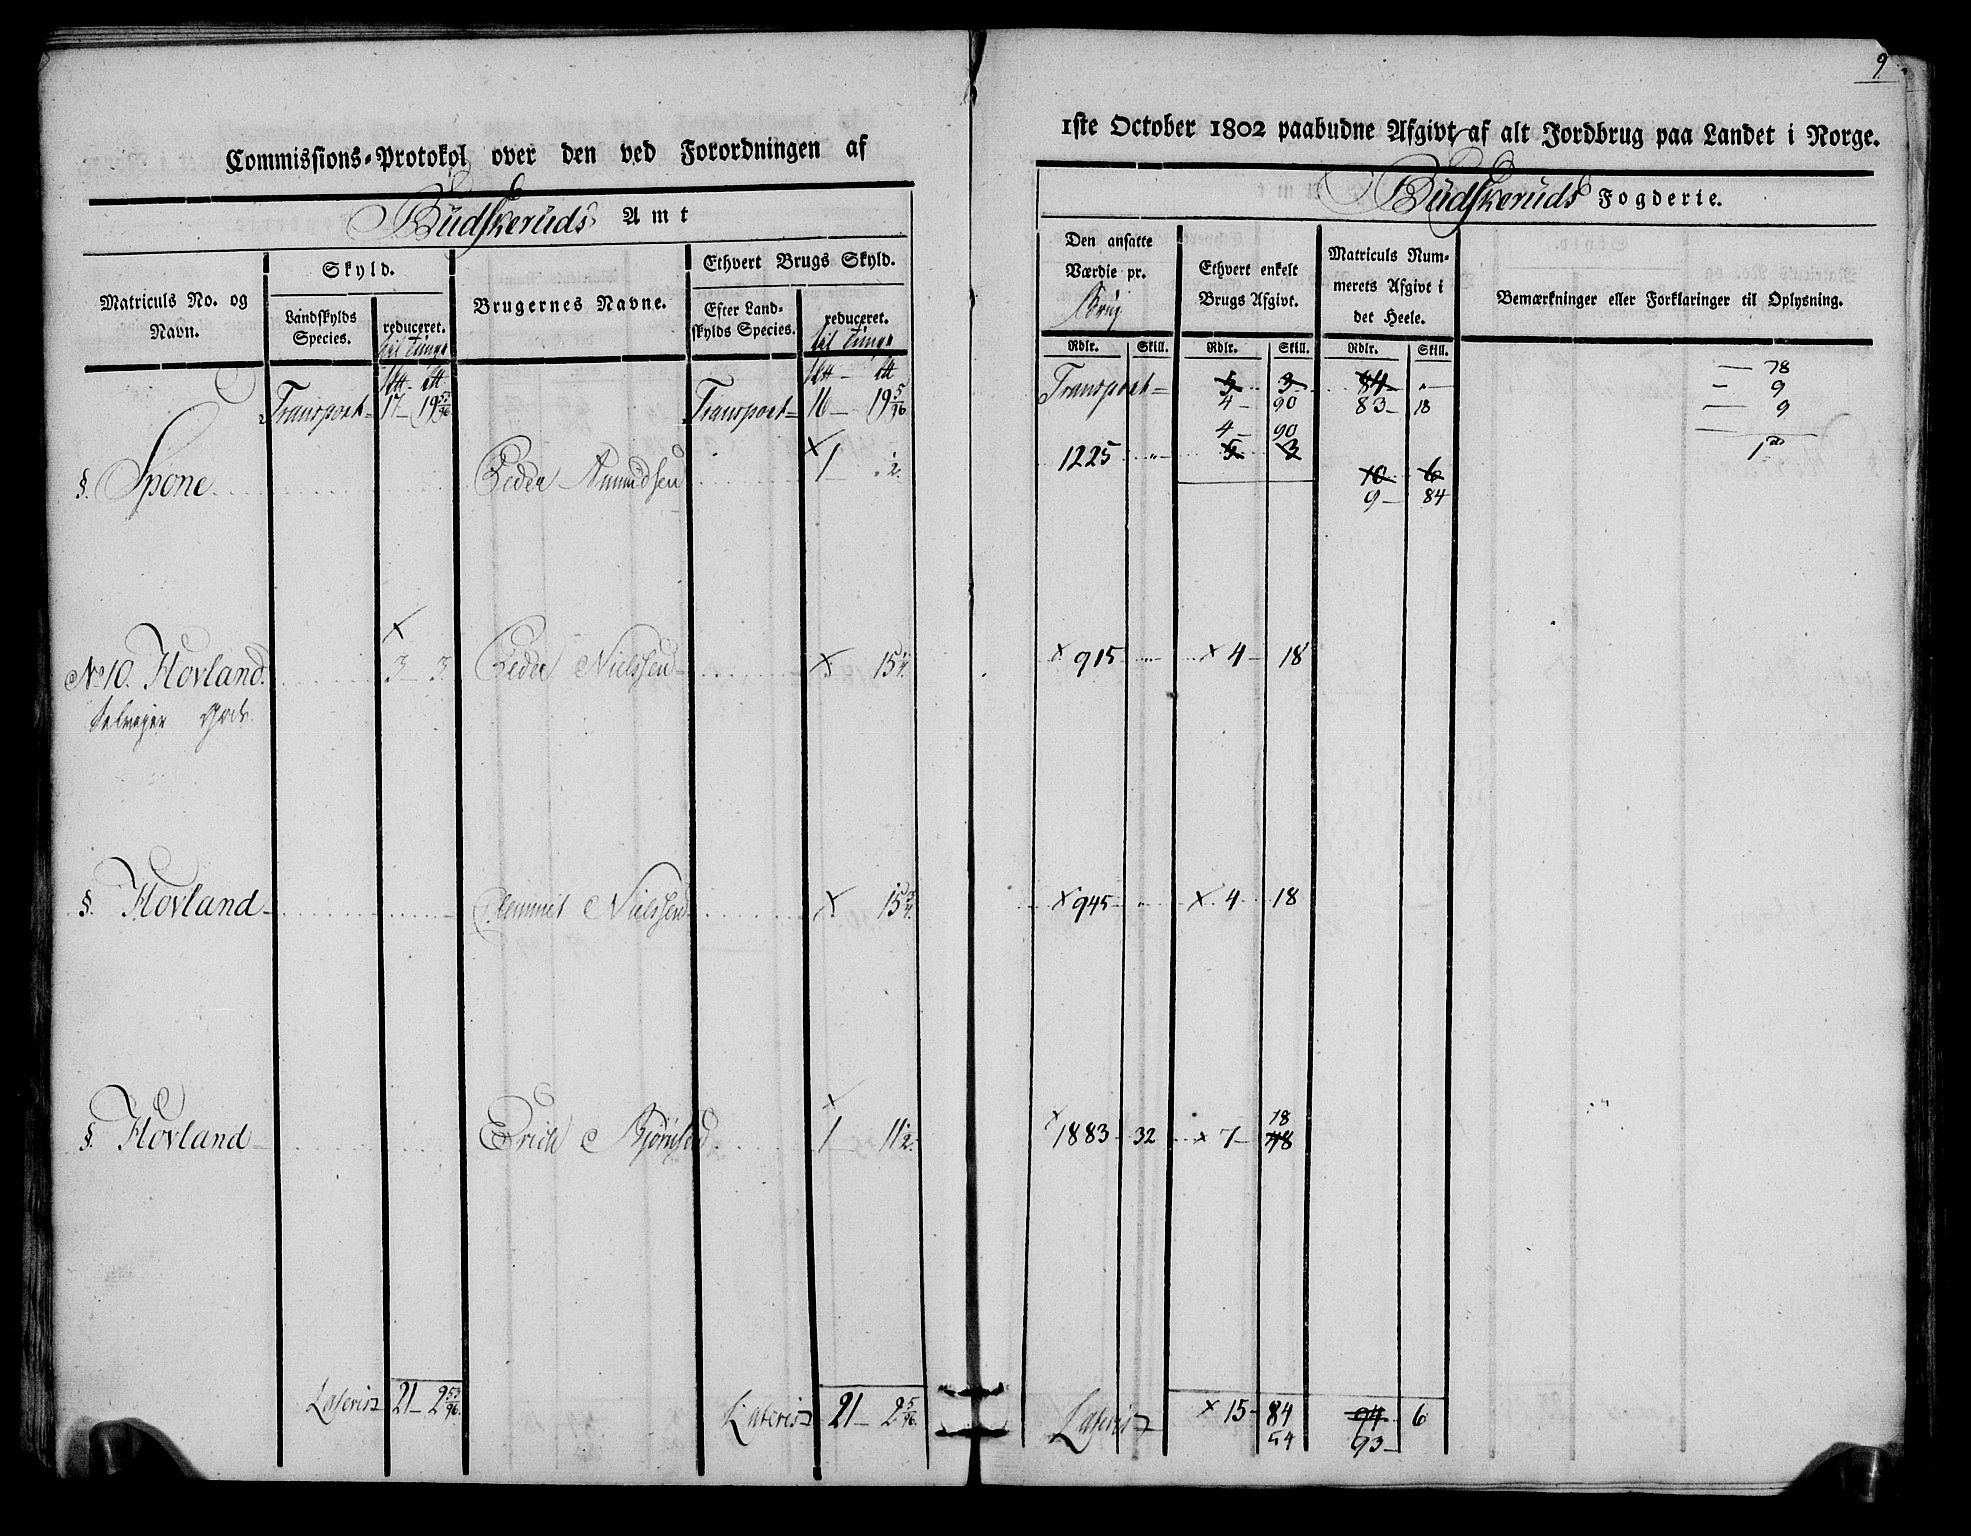 9.
Commissions-Protokol over den ved Forordningen af
1ste October 1802 paabudne Afgivt af alt Jordbrug paa Landet i Norge.
Budskeruds Amt
Budskeruds Fogderie.
Matriculs No. og Navn.
Skyld.
Landskylds Species.
reduceret. til Tunge
Brugernes Navne.
Ethvert Brugs Skyld.
Efter Landskylds Species.
reduceret. til Tunge
Den ansatte Værdie pr. Brug
Ethvert enkelt Brugs Afgivt.
Matriculs Nummerets Afgivt i det Heele.
Bemærkninger eller Forklaringer til Oplysning.
Rdlr. Skill. Rdlr. Skill. Rdlr. Skill.
Transport 17 - 19 53/96 Transport 16 - 19 5/96 Transport 5 3 84 "
4 - 90 83 - 18
78
9
9
1
4 - 90
§. Spone Peder Amundsen 1 1/2 1225 " 5 3 10 6
9 - 84
No 10. Hovland 3 - 3 Peder Nielssen 15 1/4 915 4 - 18
Selveyer Gods
§. Hovland Clemmet Nielssen 15 3/4 945 4 18
18
§. Hovland Erich Bjørnsen 1 11 1/2 1883 32 7 - 48
Lateris 21 - 2 53/96 Lateris 21 - 2 5/96 Lateris 15 - 84 94 6
54 93 -